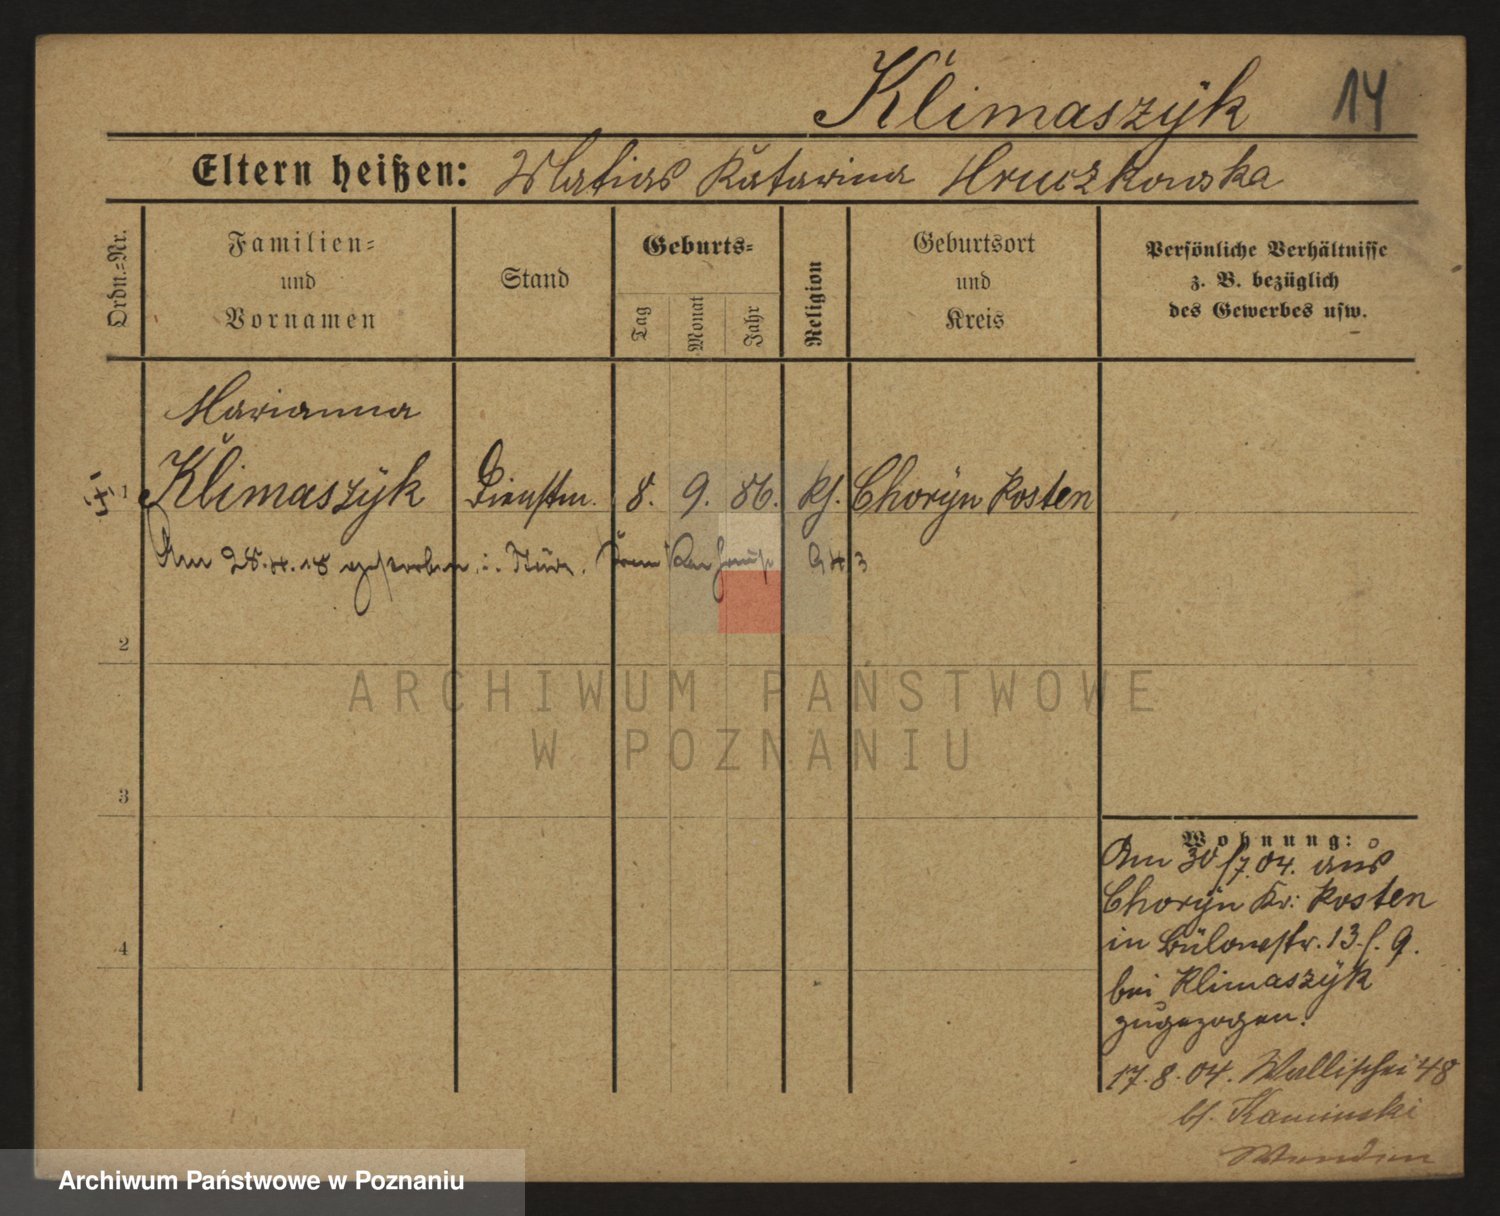 Klimaszÿk 14
Eltern heißen: Matias Katarina Hruszkowska
Ordn.=Nr.
Familien=
und
Vornamen
Stand
Geburts=
Tag
Monat
Jahr
Religion
Geburtsort
und
Kreis
Persönliche Verhältnisse
z. B. bezüglich
des Gewerbes usw.
Marianna
1 Klimaszÿk Dienstm. 8. 9. 86. kt. Chorÿn Kosten
Am 28.4.18 gestorben i.
2
ARCHIWUM PAŃSTWOWE
W POZNANIU
3
Wohnung:
Am 30/7.04. aus
Chorÿn Kr: Kosten
4
in Bülowstr. 13. 9.
bei Klimaszÿk
zugezogen.
17.8.04. Wallischei 48
bei Kaminski
Archiwum Państwowe w Poznaniu